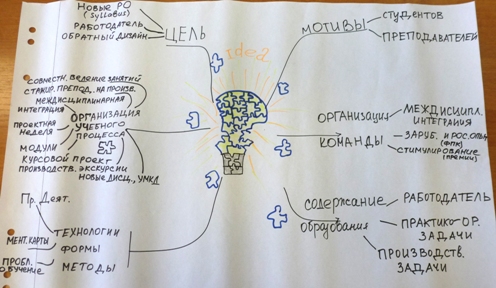 НОВЫЕ РО
(Syllabus)
РАБОТОДАТЕЛЬ
ОБРАТНЫЙ ДИЗАЙН
ЦЕЛЬ
idea
МОТИВЫ
СТУДЕНТОВ
ПРЕПОДАВАТЕЛЕЙ
СОВМЕСТН. ВЕДЕНИЕ ЗАНЯТИЙ
СТАЖИР. ПРЕПОД. НА ПРОИЗВ.
МЕЖДИСЦИПЛИНАРНАЯ
ИНТЕГРАЦИЯ
ПРОЕКТНАЯ
НЕДЕЛЯ
МОДУЛИ
КУРСОВОЙ ПРОЕКТ
ПРОИЗВОДСТВ. ЭКСКУРСИИ
НОВЫЕ ДИСЦ., УМКД
ОРГАНИЗАЦИЯ
УЧЕБНОГО
ПРОЦЕССА
ОРГАНИЗАЦИЯ
КОМАНДЫ
МЕЖДИСЦИПЛ.
ИНТЕГРАЦИЯ
ЗАРУБ. И РОС. ОПЫТ
(ФПК)
СТИМУЛИРОВАНИЕ
(ПРЕМИИ)
Пр. Деят.
МЕНТ. КАРТЫ
ПРОБЛ.
ОБУЧЕНИЕ
ТЕХНОЛОГИИ
ФОРМЫ
МЕТОДЫ
СОДЕРЖАНИЕ
ОБРАЗОВАНИЯ
РАБОТОДАТЕЛЬ
ПРАКТИКО-ОР.
ЗАДАЧИ
ПРОИЗВОДСТВ.
ЗАДАЧИ